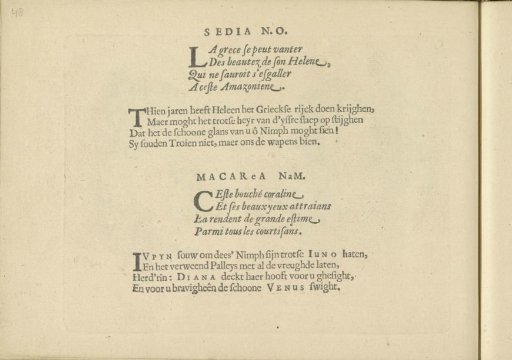 48
SEDIA N.O.
LA grece se peut vanter
Des beautez de son Helene,
Qui ne sauroit s'esgaller
A ceste Amazoniene.
THien jaren heeft Heleen het Grieckse rijck doen krijghen,
Maer moght het trotse heyr van d'yssre stiep op stijghen
Dat het de schoone glans van u ô Nimph moght sien!
Sy souden Troien niet, maer ons de wapens bien.
MACAReA NaM.
CEste bouché coraline
Et ses beaux yeux attraians
La rendent de grande estime,
Parmi tous les courtisans.
IVPYN souw om dees' Nimph sijn trotse IUNO haten,
En het verweend Palleys met al de vreughde laten,
Herd'rin: DIANA deckt haer hooft voor u ghesight,
En voor u bravigheên de schoone VENUS swight.